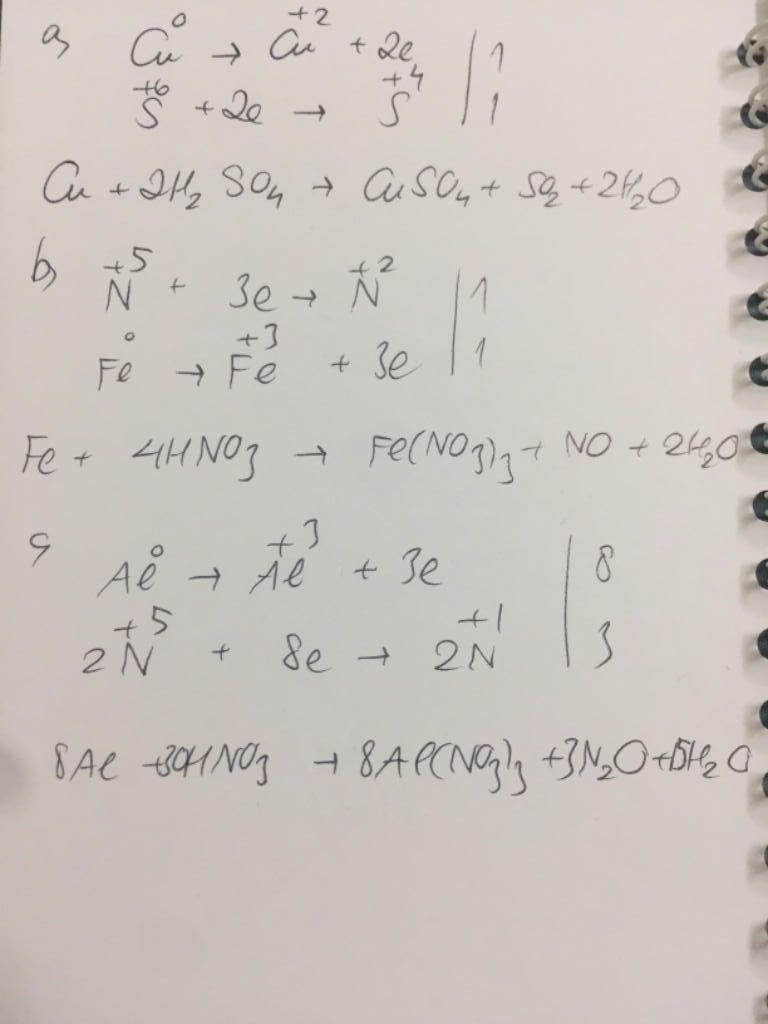 a) Cu⁰ → Cu⁺² + 2e | 1
S⁺⁶ + 2e → S⁺⁴ | 1
Cu + 2H₂SO₄ → CuSO₄ + SO₂ + 2H₂O
b) N⁺⁵ + 3e → N⁺² | 1
Fe⁰ → Fe⁺³ + 3e | 1
Fe + 4HNO₃ → Fe(NO₃)₃ + NO + 2H₂O
c) Al⁰ → Al⁺³ + 3e | 8
2N⁺⁵ + 8e → 2N⁺¹ | 3
8Al + 30HNO₃ → 8Al(NO₃)₃ + 3N₂O + 15H₂O